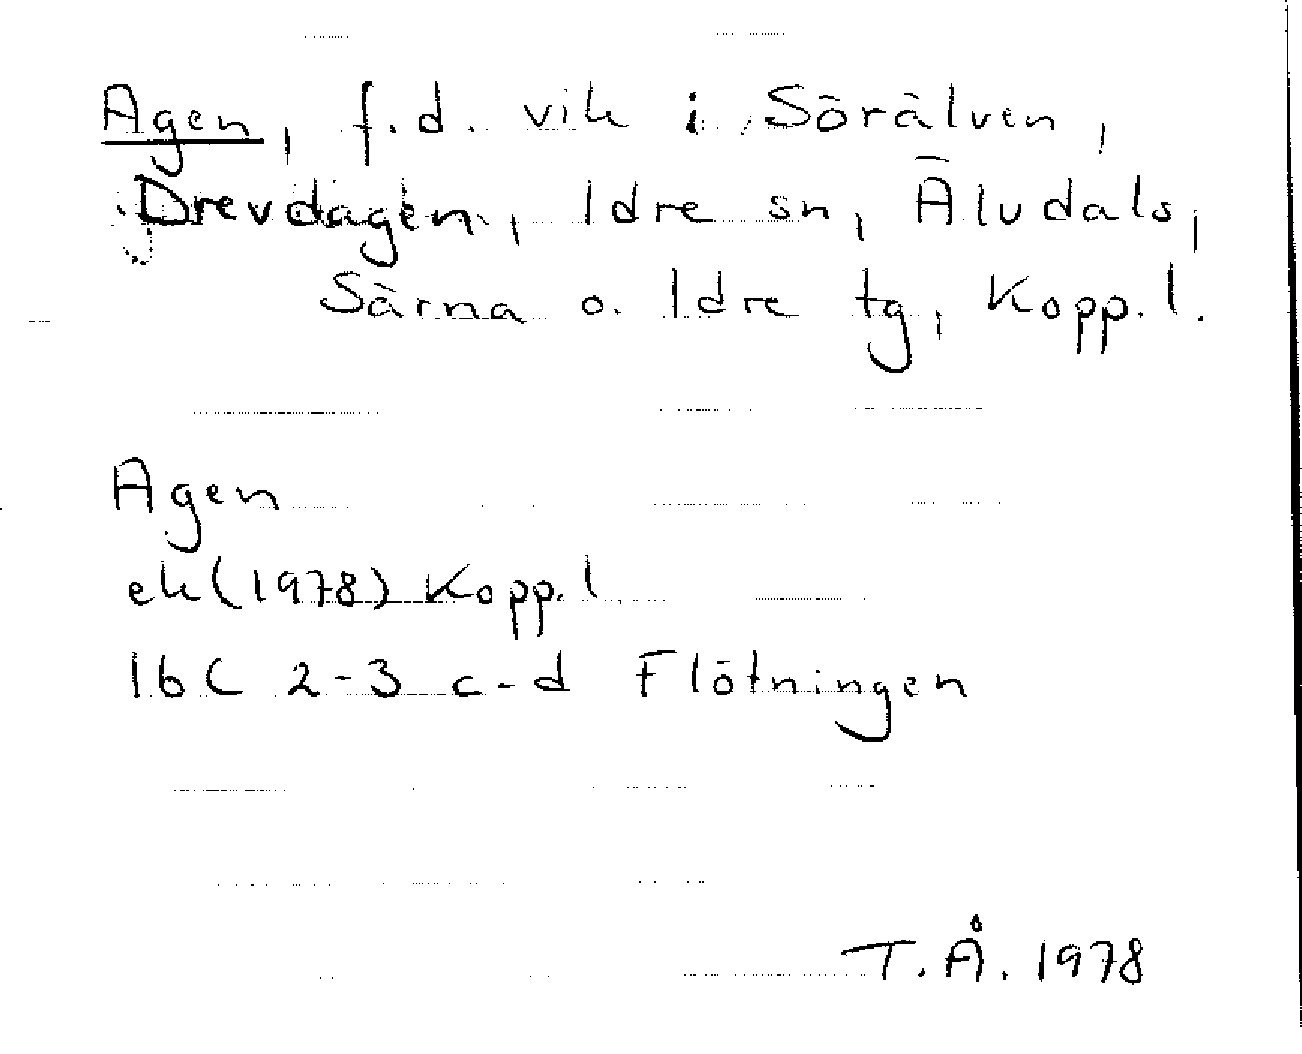 Agen, f.d. vik i Sörälven,
Drevdagen, Idre sn, Älvdals,
Särna o. Idre tg, Kopp. l.
Agen
ek (1978) Kopp. l
16C 2-3 c-d Flötningen
T.Å. 1978